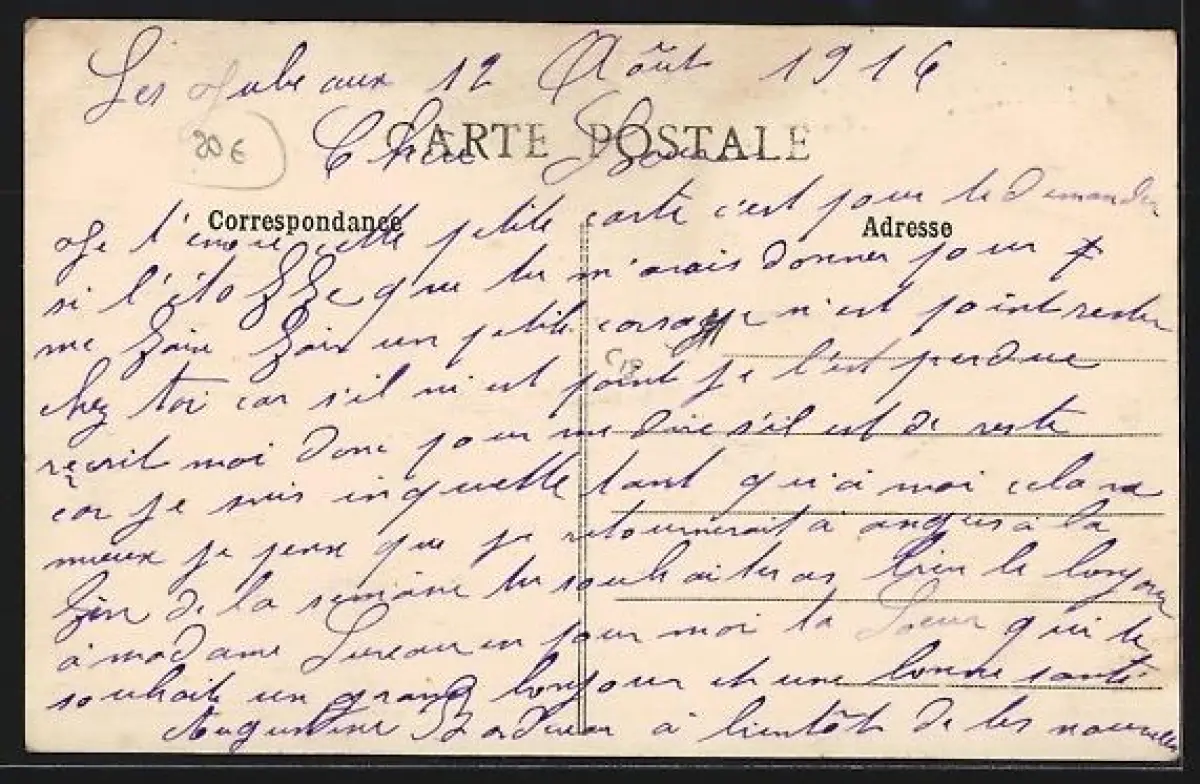 Les Gabeaux 12 Août 1916
20€
CARTE POSTALE
Chère Soeur
Correspondance
Adresse
Je t'envoie cette petite carte c'est pour te demander
si l'étoffe que tu m'avais donner pour
me faire faire un petit corsage n'est point rester
chez toi car s'il ni est point je l'est perdue
récrit moi donc pour me dire s'il est de reste
car je suis inquiette tant qu'à moi cela va
mieux je pense que je retournerait à angers à la
fin de la semaine tu souhaiteras bien le bonjour
à madame pour moi ta Soeur qui te
souhait un grand bonjour et une bonne santé
Augustine à bientôt de tes nouvelles